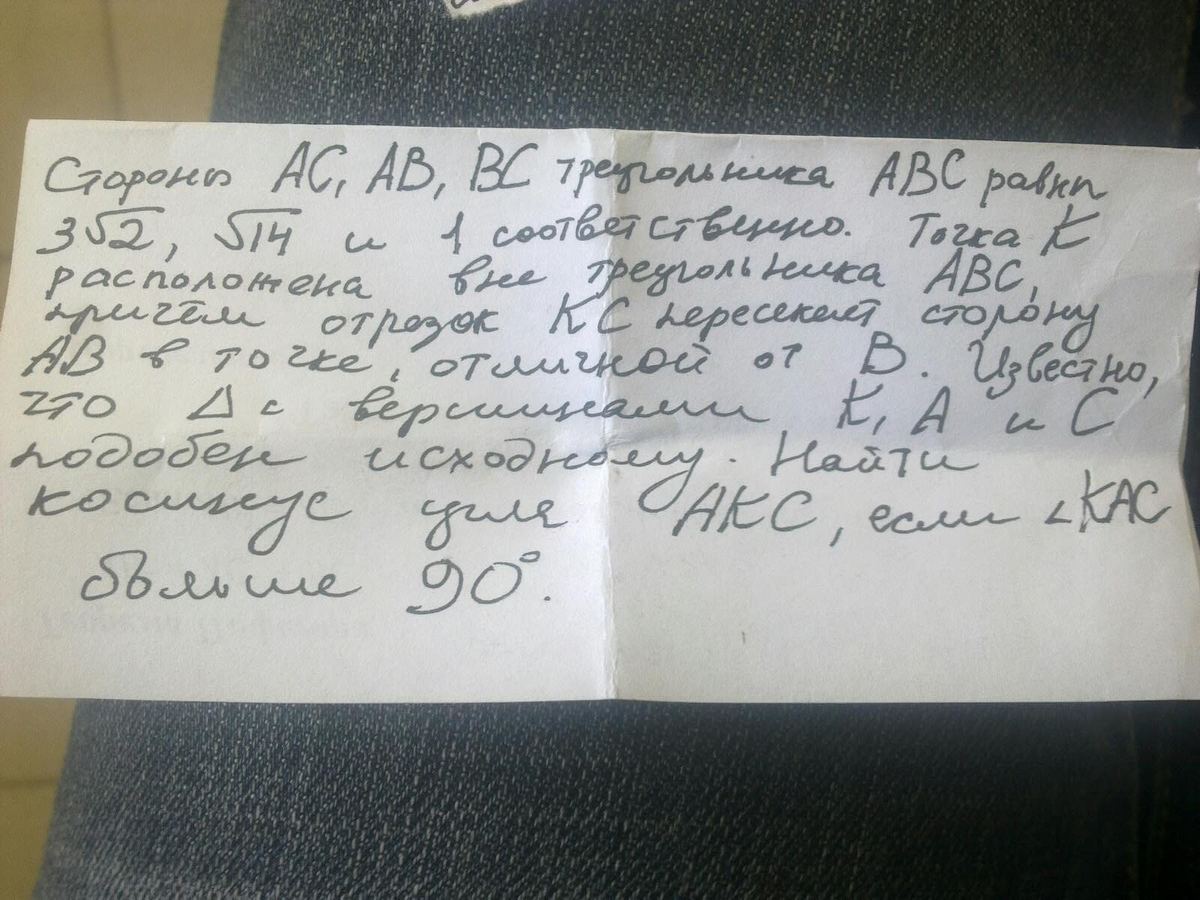 Стороны AC, AB, BC треугольника ABC равны
3√2, √14 и 1 соответственно. Точка K
расположена вне треугольника ABC,
причём отрезок KC пересекает сторону
AB в точке, отличной от B. Известно,
что Δ с вершинами K, A и C
подобен исходному. Найти
косинус угла AKC, если ∠KAC
больше 90°.